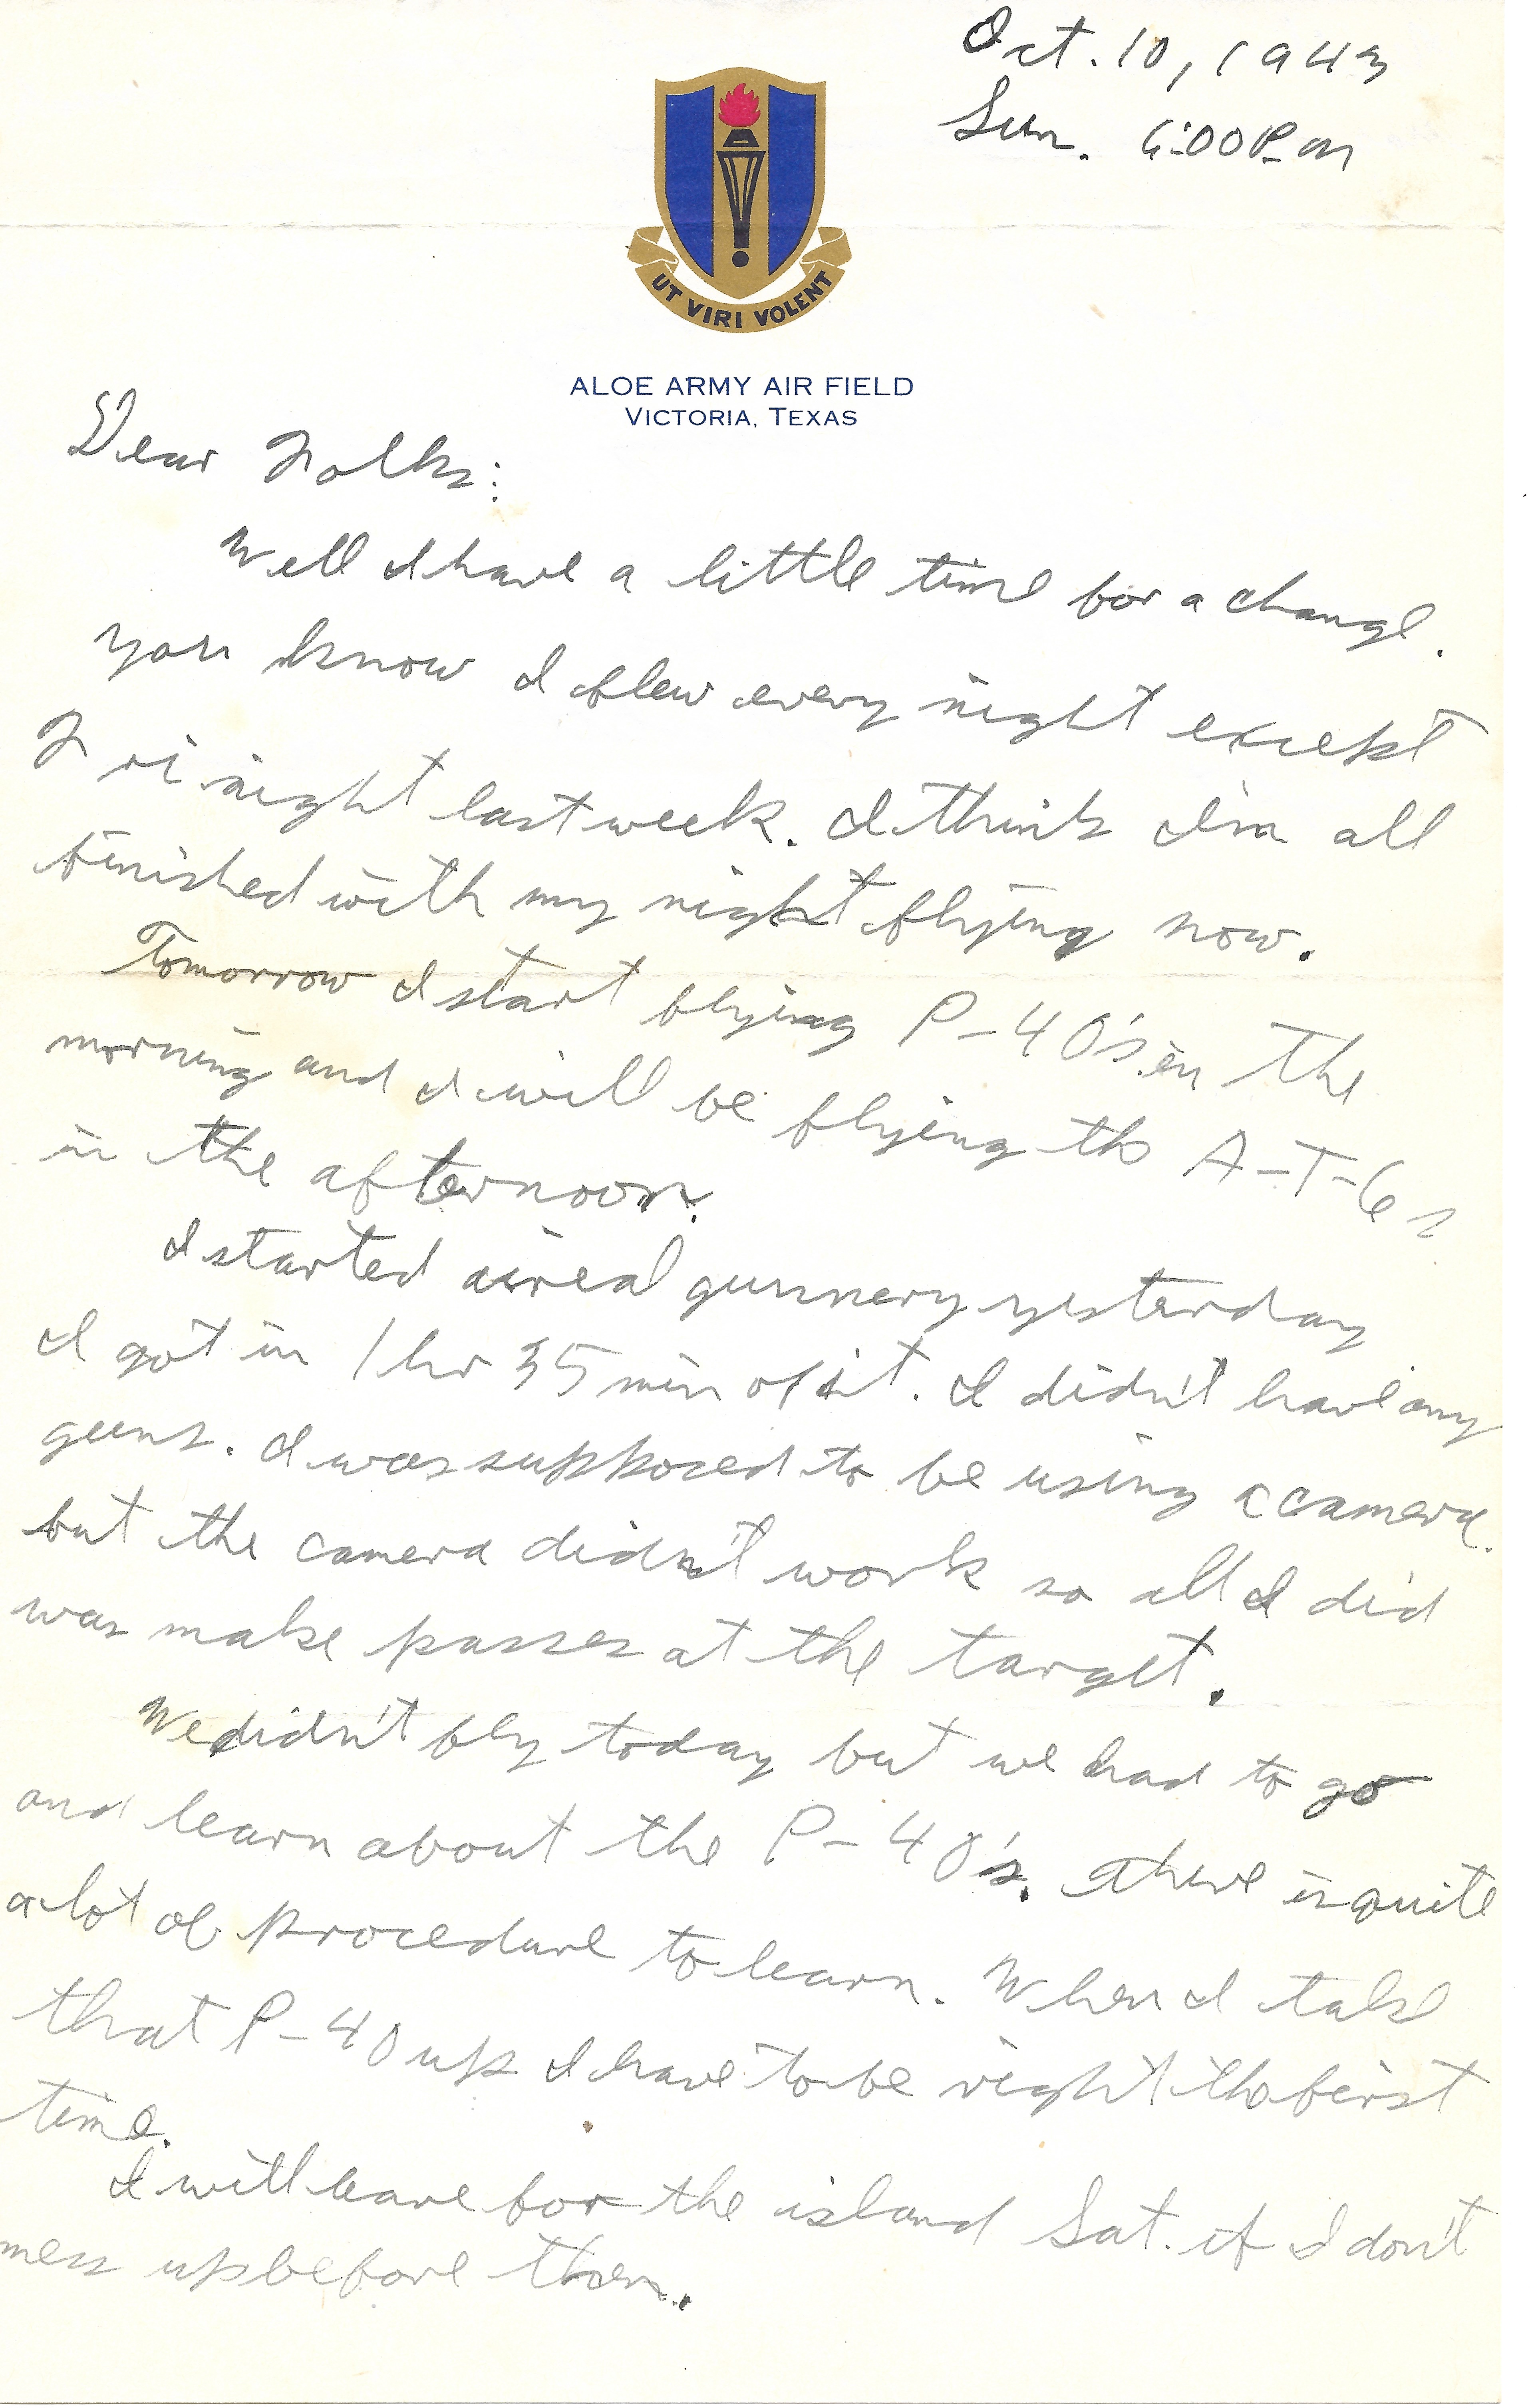 Oct. 10, 1943
Sun. 6:00 P.m
UT VIRI VOLENT
ALOE ARMY AIR FIELD
VICTORIA, TEXAS
Dear Folks:
Well I have a little time for a change.
you know I flew every night except
Fri night last week. I think I'm all
finished with my night flying now.
Tomorrow I start flying P-40's in the
morning and I will be flying the A-T-6s
in the afternoon.
I started aireal gunnery yesterday
I got in 1 hr 35 min of it. I didn't have any
guns. I was supposed to be using a camera.
but the camera didn't work so all I did
was make passes at the target.
We didn't fly today but we had to go
and learn about the P-40's. There is quite
a lot of procedure to learn. When I take
that P-40 up I have to be right the first
time.
I will leave for the island Sat. if I don't
mess up before then.